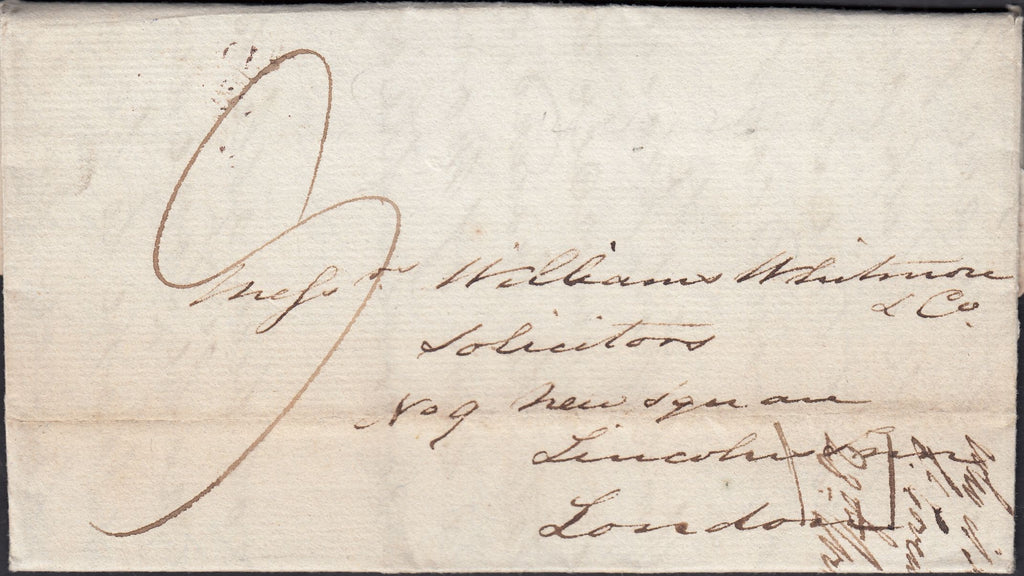 3
Messrs Williams Whitmore
& Co.
Solicitors
No 9 New Square
Lincolns Inn
London